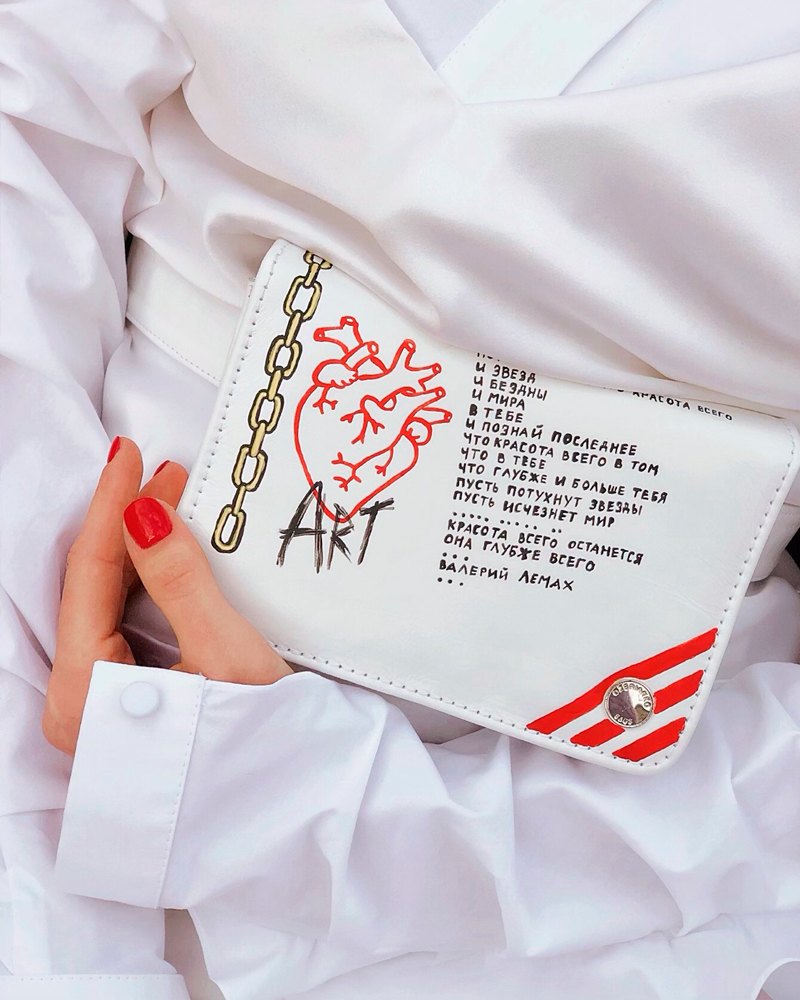 ART
И ЗВЕЗД
КРАСОТА ВСЕГО
И БЕЗДНЫ
И МИРА
В ТЕБЕ
И ПОЗНАЙ ПОСЛЕДНЕЕ
ЧТО КРАСОТА ВСЕГО В ТОМ
ЧТО В ТЕБЕ
ЧТО ГЛУБЖЕ И БОЛЬШЕ ТЕБЯ
ПУСТЬ ПОТУХНУТ ЗВЕЗДЫ
ПУСТЬ ИСЧЕЗНЕТ МИР
..... ..... ..
КРАСОТА ВСЕГО ОСТАНЕТСЯ
ОНА ГЛУБЖЕ ВСЕГО
...
ВАЛЕРИЙ ЛЕМАХ
...